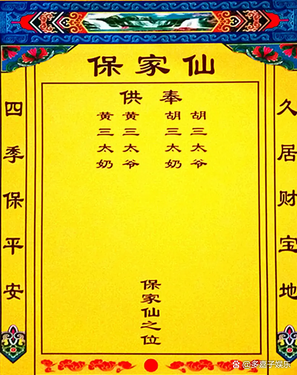 保家仙
供奉
久居财宝地
胡三太爷
胡三太奶
黄三太爷
黄三太奶
保家仙之位
四季保平安